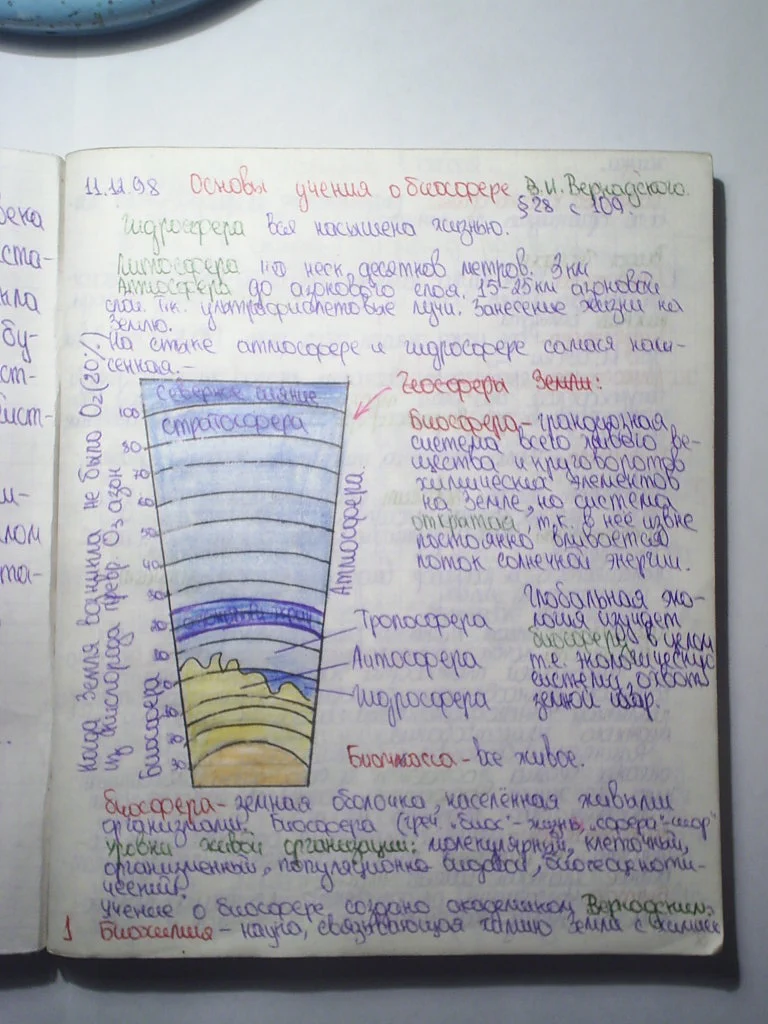 века
ста-
бу-
ст-
лист-
лом
та-
11.11.98 Основы учения о биосфере В.И. Вернадского.
§28 с 109.
Гидросфера вся насыщена жизнью.
Литосфера неск. десятков метров. 3 км
Атмосфера до азонового слоя. 15-25км азоновой
слой. т.к. ультрафиолетовые лучи. Занесение жизни на
Землю.
На стыке атмосфере и гидросфере самая насы-
щенная.-
Геосферы Земли:
Северное сияние
Стратосфера
100
80
70
Атмосфера
Тропосфера
Литосфера
Гидросфера
Биосфера
Когда Земля возникла не было O2(20%)
из кислорода превр. O3 азон
Биосфера - грандиозная
система всего живого ве-
щества и круговоротов
химических элементов
на Земле, но система
открытая, т.к. в неё извне
постоянно вливается
поток солнечной энергии.
Глобальная эко-
логия изучает
биосферу в целом
т.е. экологическую
систему, охват.
земной шар.
Биомасса - все живое.
Биосфера - земная оболочка, населённая живыми
организмами. Биосфера (греч. "биос"-жизнь, "сфера"-шар)
Уровни живой организации: молекулярный, клеточный,
организменный, популяционно видовой, биогеоценоти-
ческий.
Учение о биосфере создано академиком Вернадским.
1 Биохимия - наука, связывающая химию земли с химией